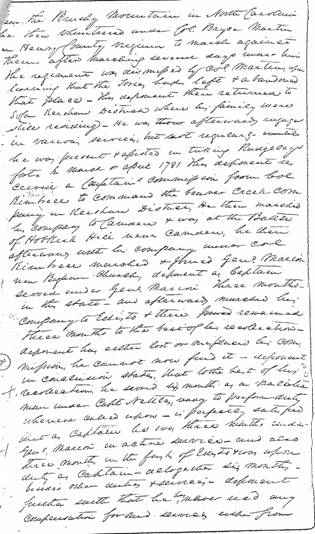 the Brushy Mountain in North Carolina
he then volunteered under Col. Bryce Martin
in Henry County Virginia to march against
them after marching several days with him
the regiment was dismissed by Col Martin, upon
learning that the Tories had left & abandoned
that place - this deponent then returned to
Kershaw District where his family were
still residing - He was afterwards engaged
in various services, but not regularly until
he was present & assisted in taking Rudgesways
fort. In march or aprile 1781 this deponent
a Captains commission from Col
Kimbree to command the beaver Creek Com
pany in Kershaw District. He then marched
his company to Camden & was at the Battle
of Hobkirk Hill near Camden, he then
afterwards with his company under Col
Kimbree marched & joined Genl Marion
near Church, deponent as Captain
served under Genl Marion three months
in this state - and afterwards marched his
company to Edisto & there remained
three months to the best of his recollection -
deponent has either lost or misplaced his com
mission, he cannot now find it - deponent
in conclusion states, that to the best of his
recollection he served six months as a malitia
man under Capt Nettles, ready to perform duty
whenever called upon - is perfectly satisfied
that as Captain he was three months under
Genl Marion in active service - and also
three months in the fork of Edisto & was upon
duty as Captain - altogether six months,
besides other duties & services - deponent
further saith that he never recd any
compensation for said services either from